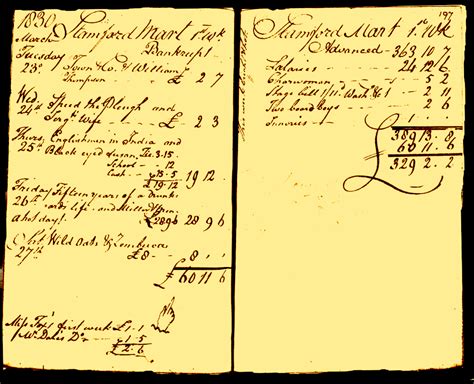 1830 Stamford Mart 1st wk
March Bankrupt
Tuesday Town Co. & William
23d. Thompson £ 2 7
Wed. Speed the Plough and
24th Wife £ 2 3
Thurs. Englishman in India and
25th Black eyed Susan, 3.15
School - - 12
Cash - - 15.5
£19.12 19 12
Friday Fifteen years of a Drunk-
26th ards life. and
a hot day! £28 9 6 28 9 6
Sat. Wild Oats &
27th £8 8
£ 60 11 6
Miss Fox's first week £1.1
Mr. Do. 1.5
£ 2.6
197
Stamford Mart 1st wk
Advanced - 363 10 7
Salaries - - 24 12 6
Charwoman - - 5 2
Stage - - 1 5
Two board Boys - - 2 6
£ 389 13 8
60 11 6
329 2 2